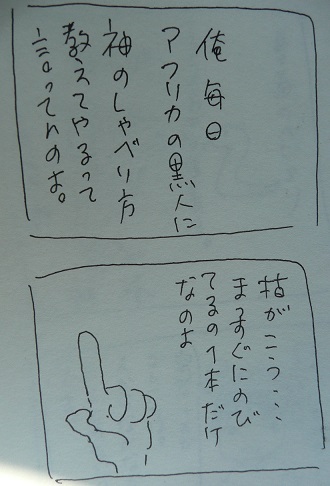 俺毎日
アフリカの黒人に
神のしゃべり方
教えてやるって
言ってんのよ。
枝がこう・・・
まっすぐにのび
てるの1本だけ
なのよ